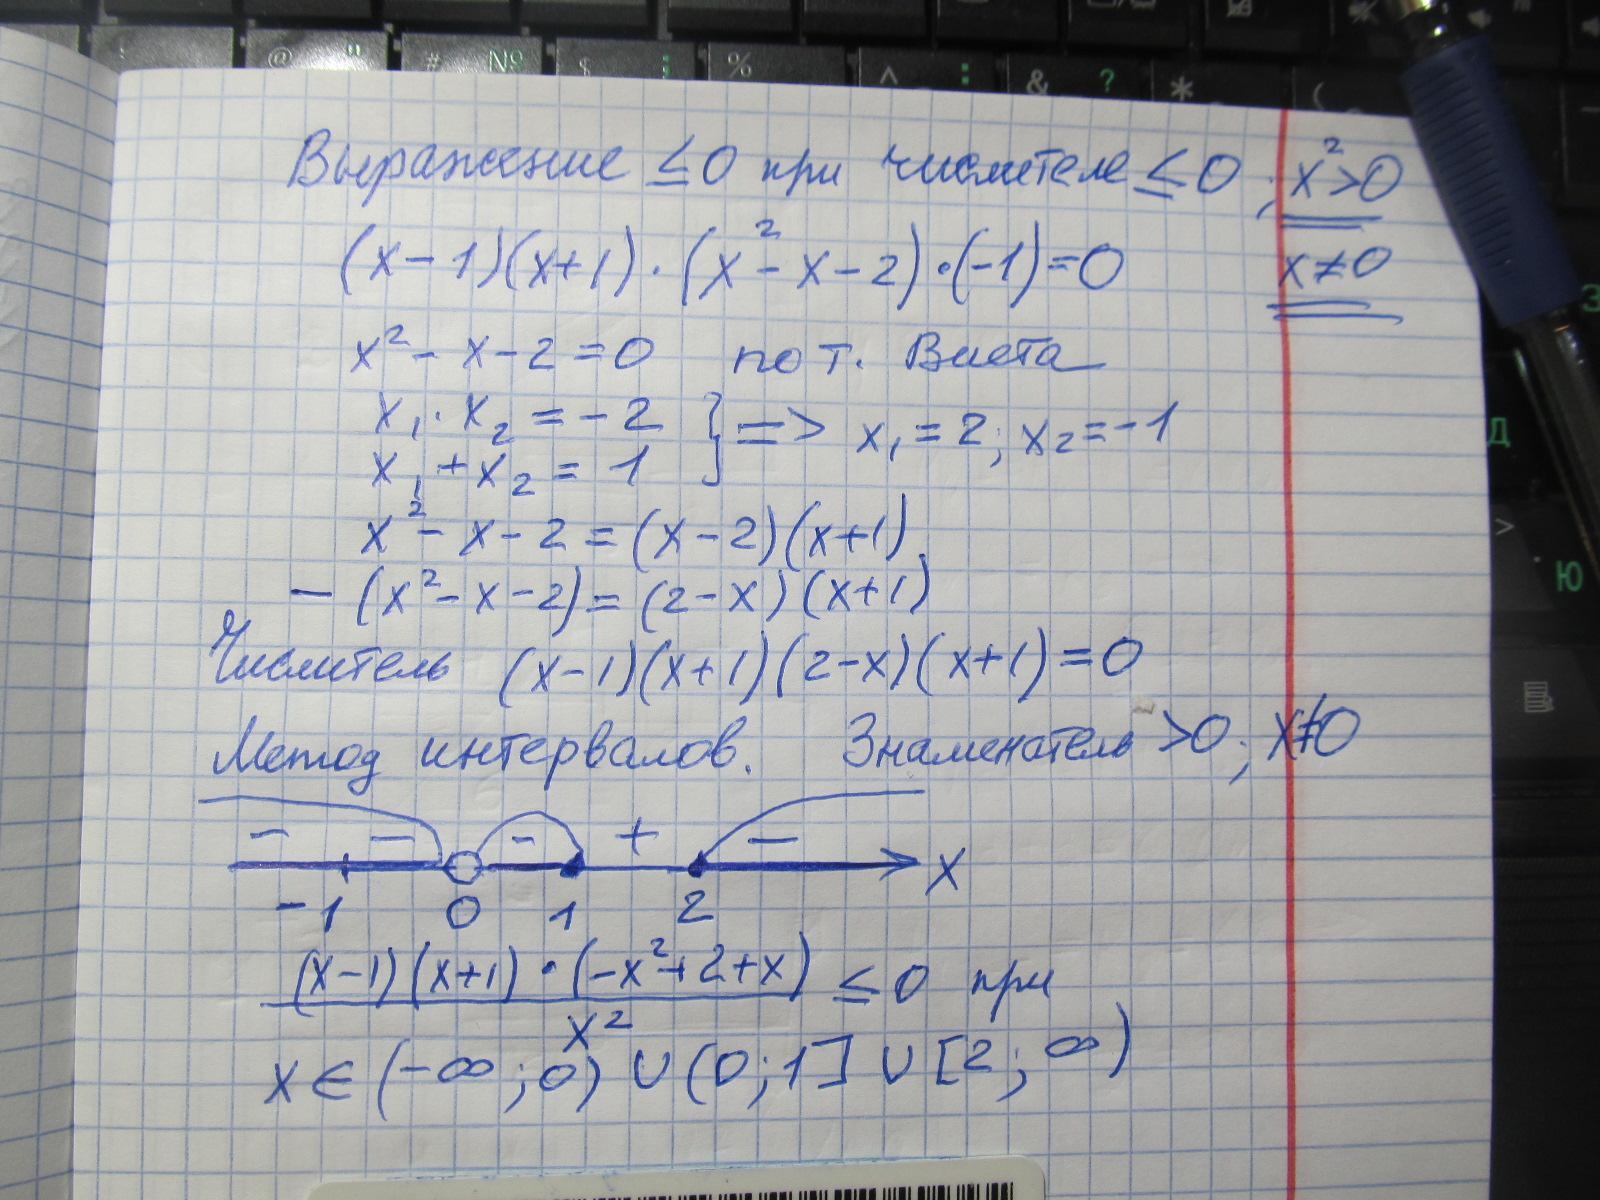 @ "
# №
$ ;
%
^ :
& ?
*
(
Выражение ≤0 при числителе ≤0 ; x²>0
(x-1)(x+1)·(x²-x-2)·(-1)=0
x≠0
x²-x-2=0 по т. Виета
x₁·x₂=-2
x₁+x₂=1 } => x₁=2; x₂=-1
x²-x-2=(x-2)(x+1)
-(x²-x-2)=(2-x)(x+1)
Числитель (x-1)(x+1)(2-x)(x+1)=0
Метод интервалов. Знаменатель >0; x≠0
- - - + -
-1 0 1 2 x
(x-1)(x+1)·(-x²+2+x)
≤0 при
x²
x∈(-∞;0)∪(0;1]∪[2;∞)
Д
>
Ю